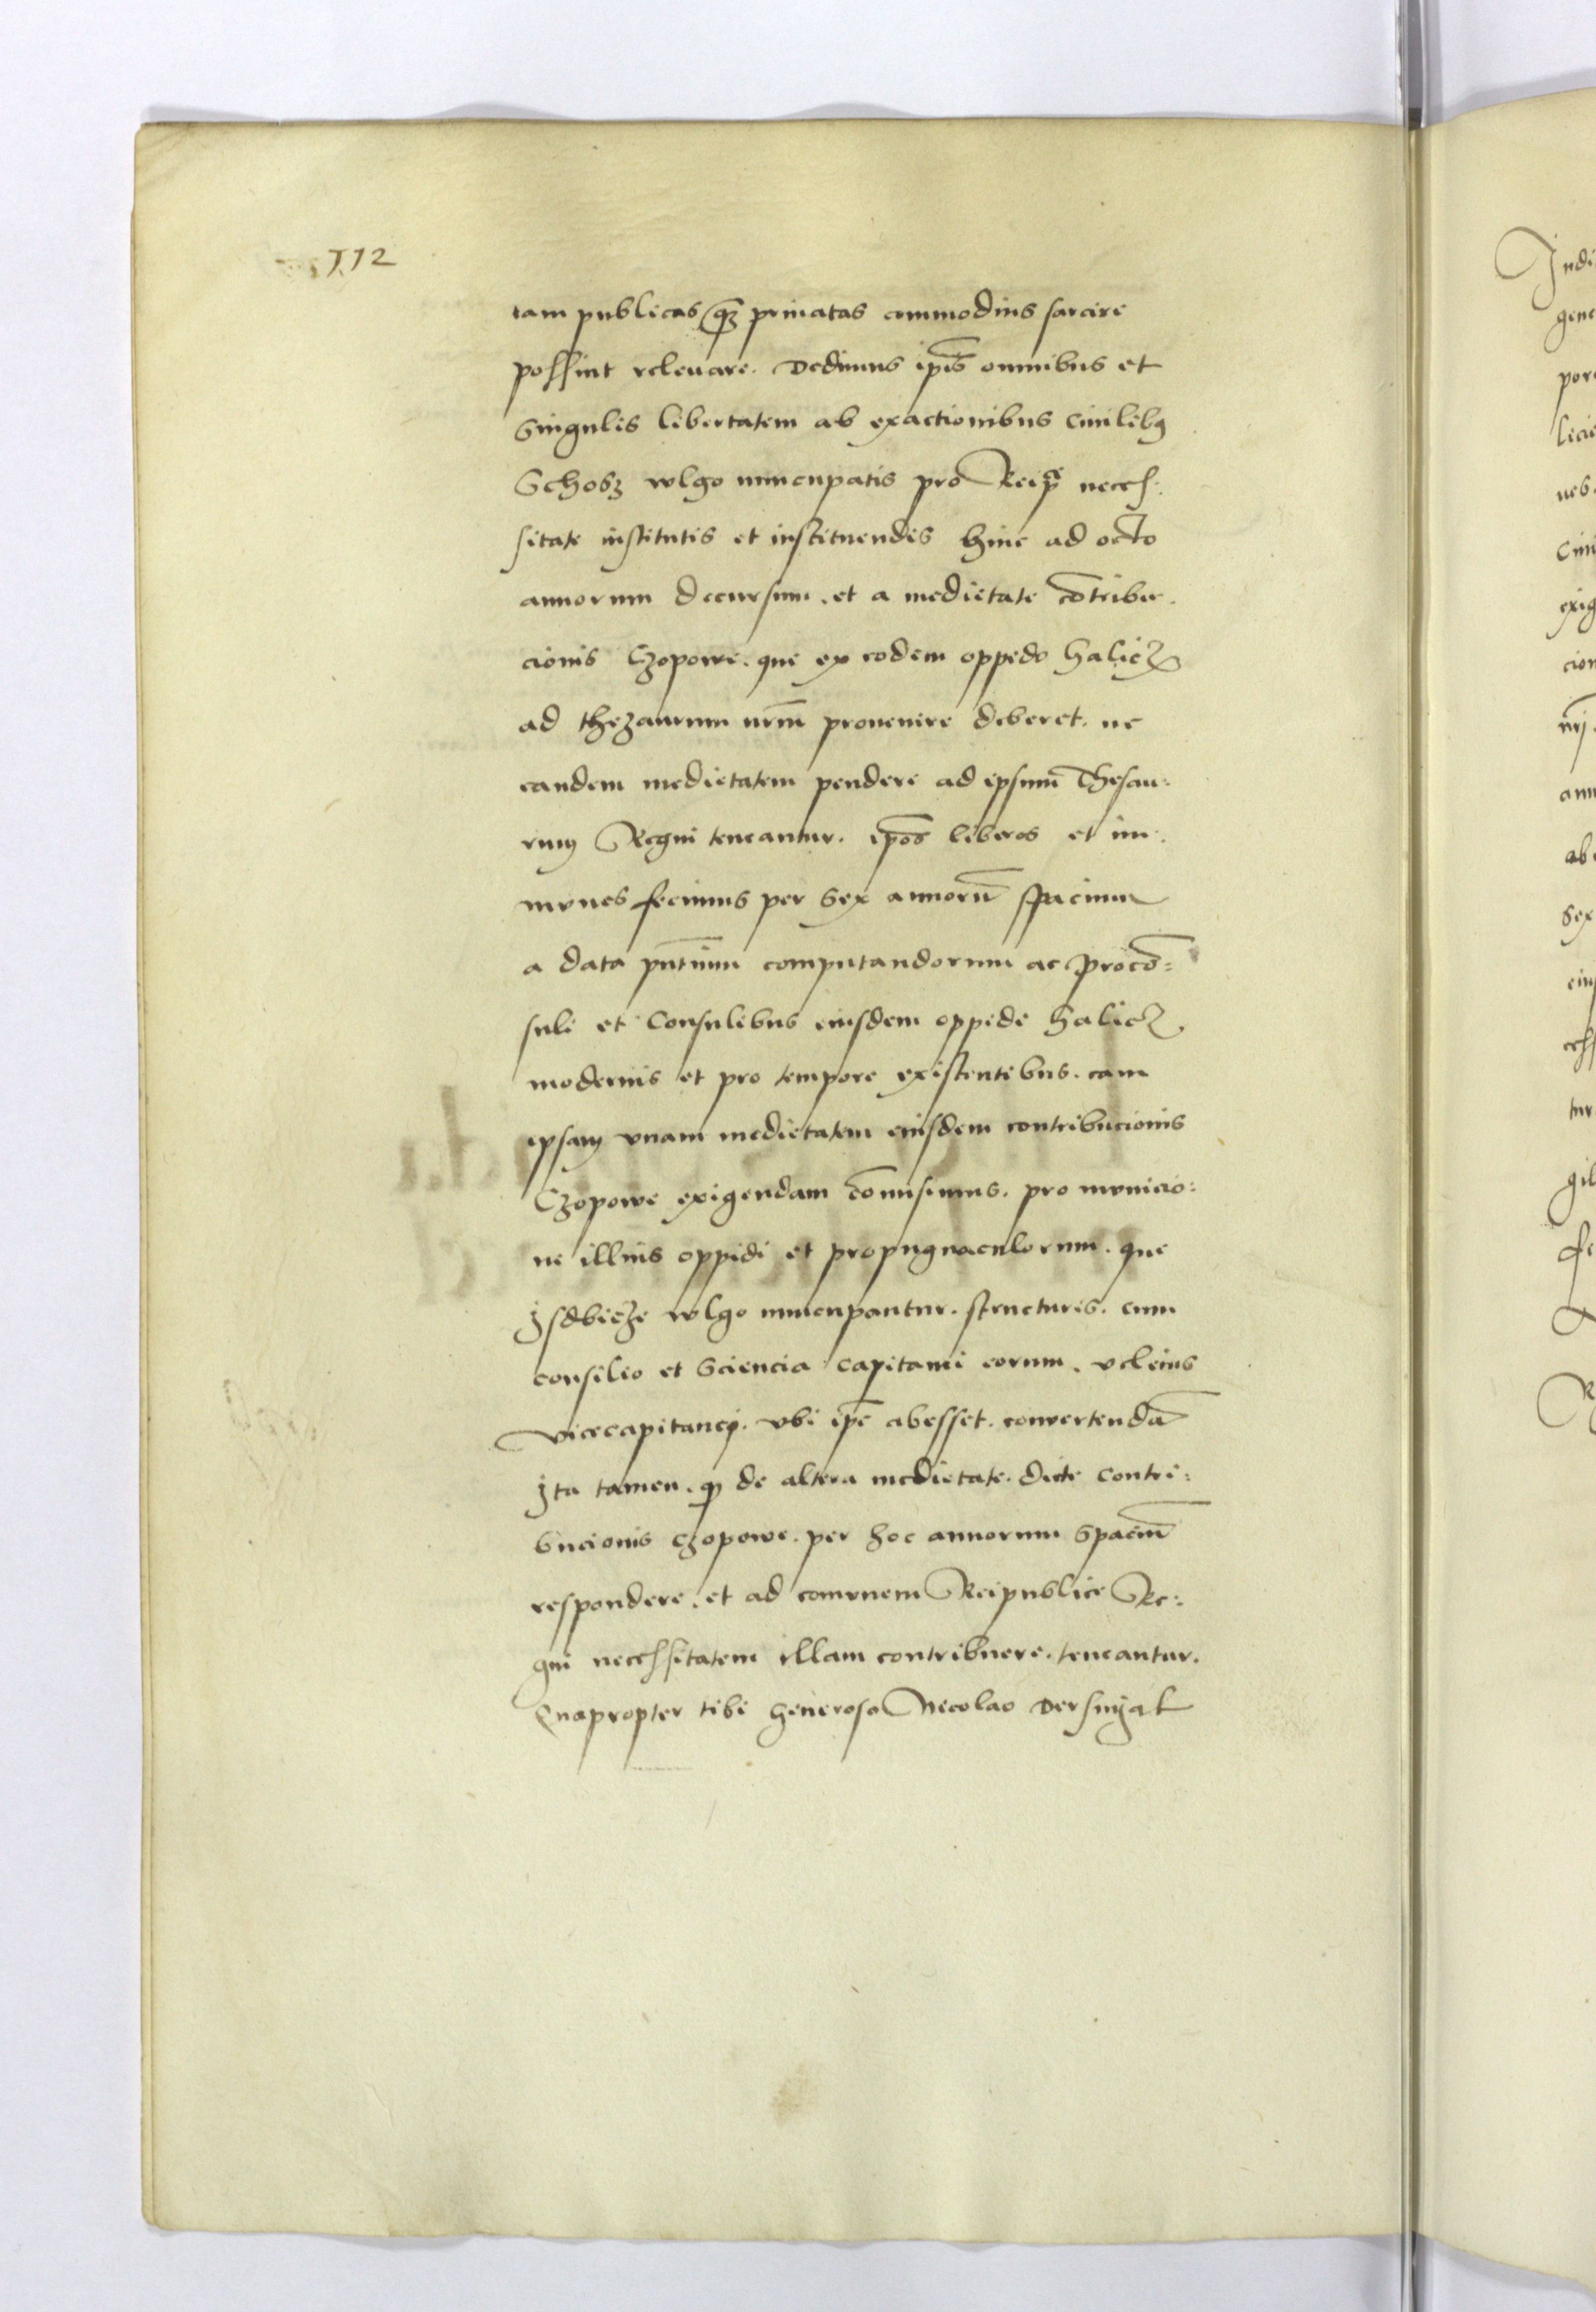 112
tam publicas q̃ȝ priuatas commodius sarcire
possint releuare. Dedimus ip̃is omnibus et
Singulis libertatem ab exactionibus Ciuilibꝫ
Schosz wlgo nuncupatis pro Reip̃ necess:
sitate institutis et instituendis hinc ad octo
annorum decursum. et a medietate cõtribu:
cionis Czopowe. que ex eodem oppido Halicz
ad thezaurum nr̃m prouenire deberet. ne
eandem medietatem pendere ad ipsum Thesau:
rum Regni teneantur. ip̃os liberos et im:
munes fecimus per Sex annorũ spacium
a data pñtium computandorum ac procõ:
suli et Consulibus eiusdem oppidi Halicz
modernis et pro tempore existentibus. eam
ipsam vnam medietatem eiusdem contribucionis
Czopowe exigendam cõmisimus. pro municio:
ne illius oppidi et propugnaculorum. que
Jsdbicze wlgo nuncupantur. structuris. cum
consilio et Sciencia Capitanei eorum. vel eius
vicecapitanei. vbi ip̃e abesset. conuertendã
Jta tamen. ꝙ de altera medietate. dicte contri:
bucionis Czopowe. per hoc annorum Spaciũ
respondere. et ad comunem Reipublice Re:
gni necessitatem illam contribuere. teneantur.
Quapropter tibi Generoso Nicolao Dersnyak
Jndi
gene
por
licie
exig
cion
nr̃j
ann
ab
Sex
tur
gil